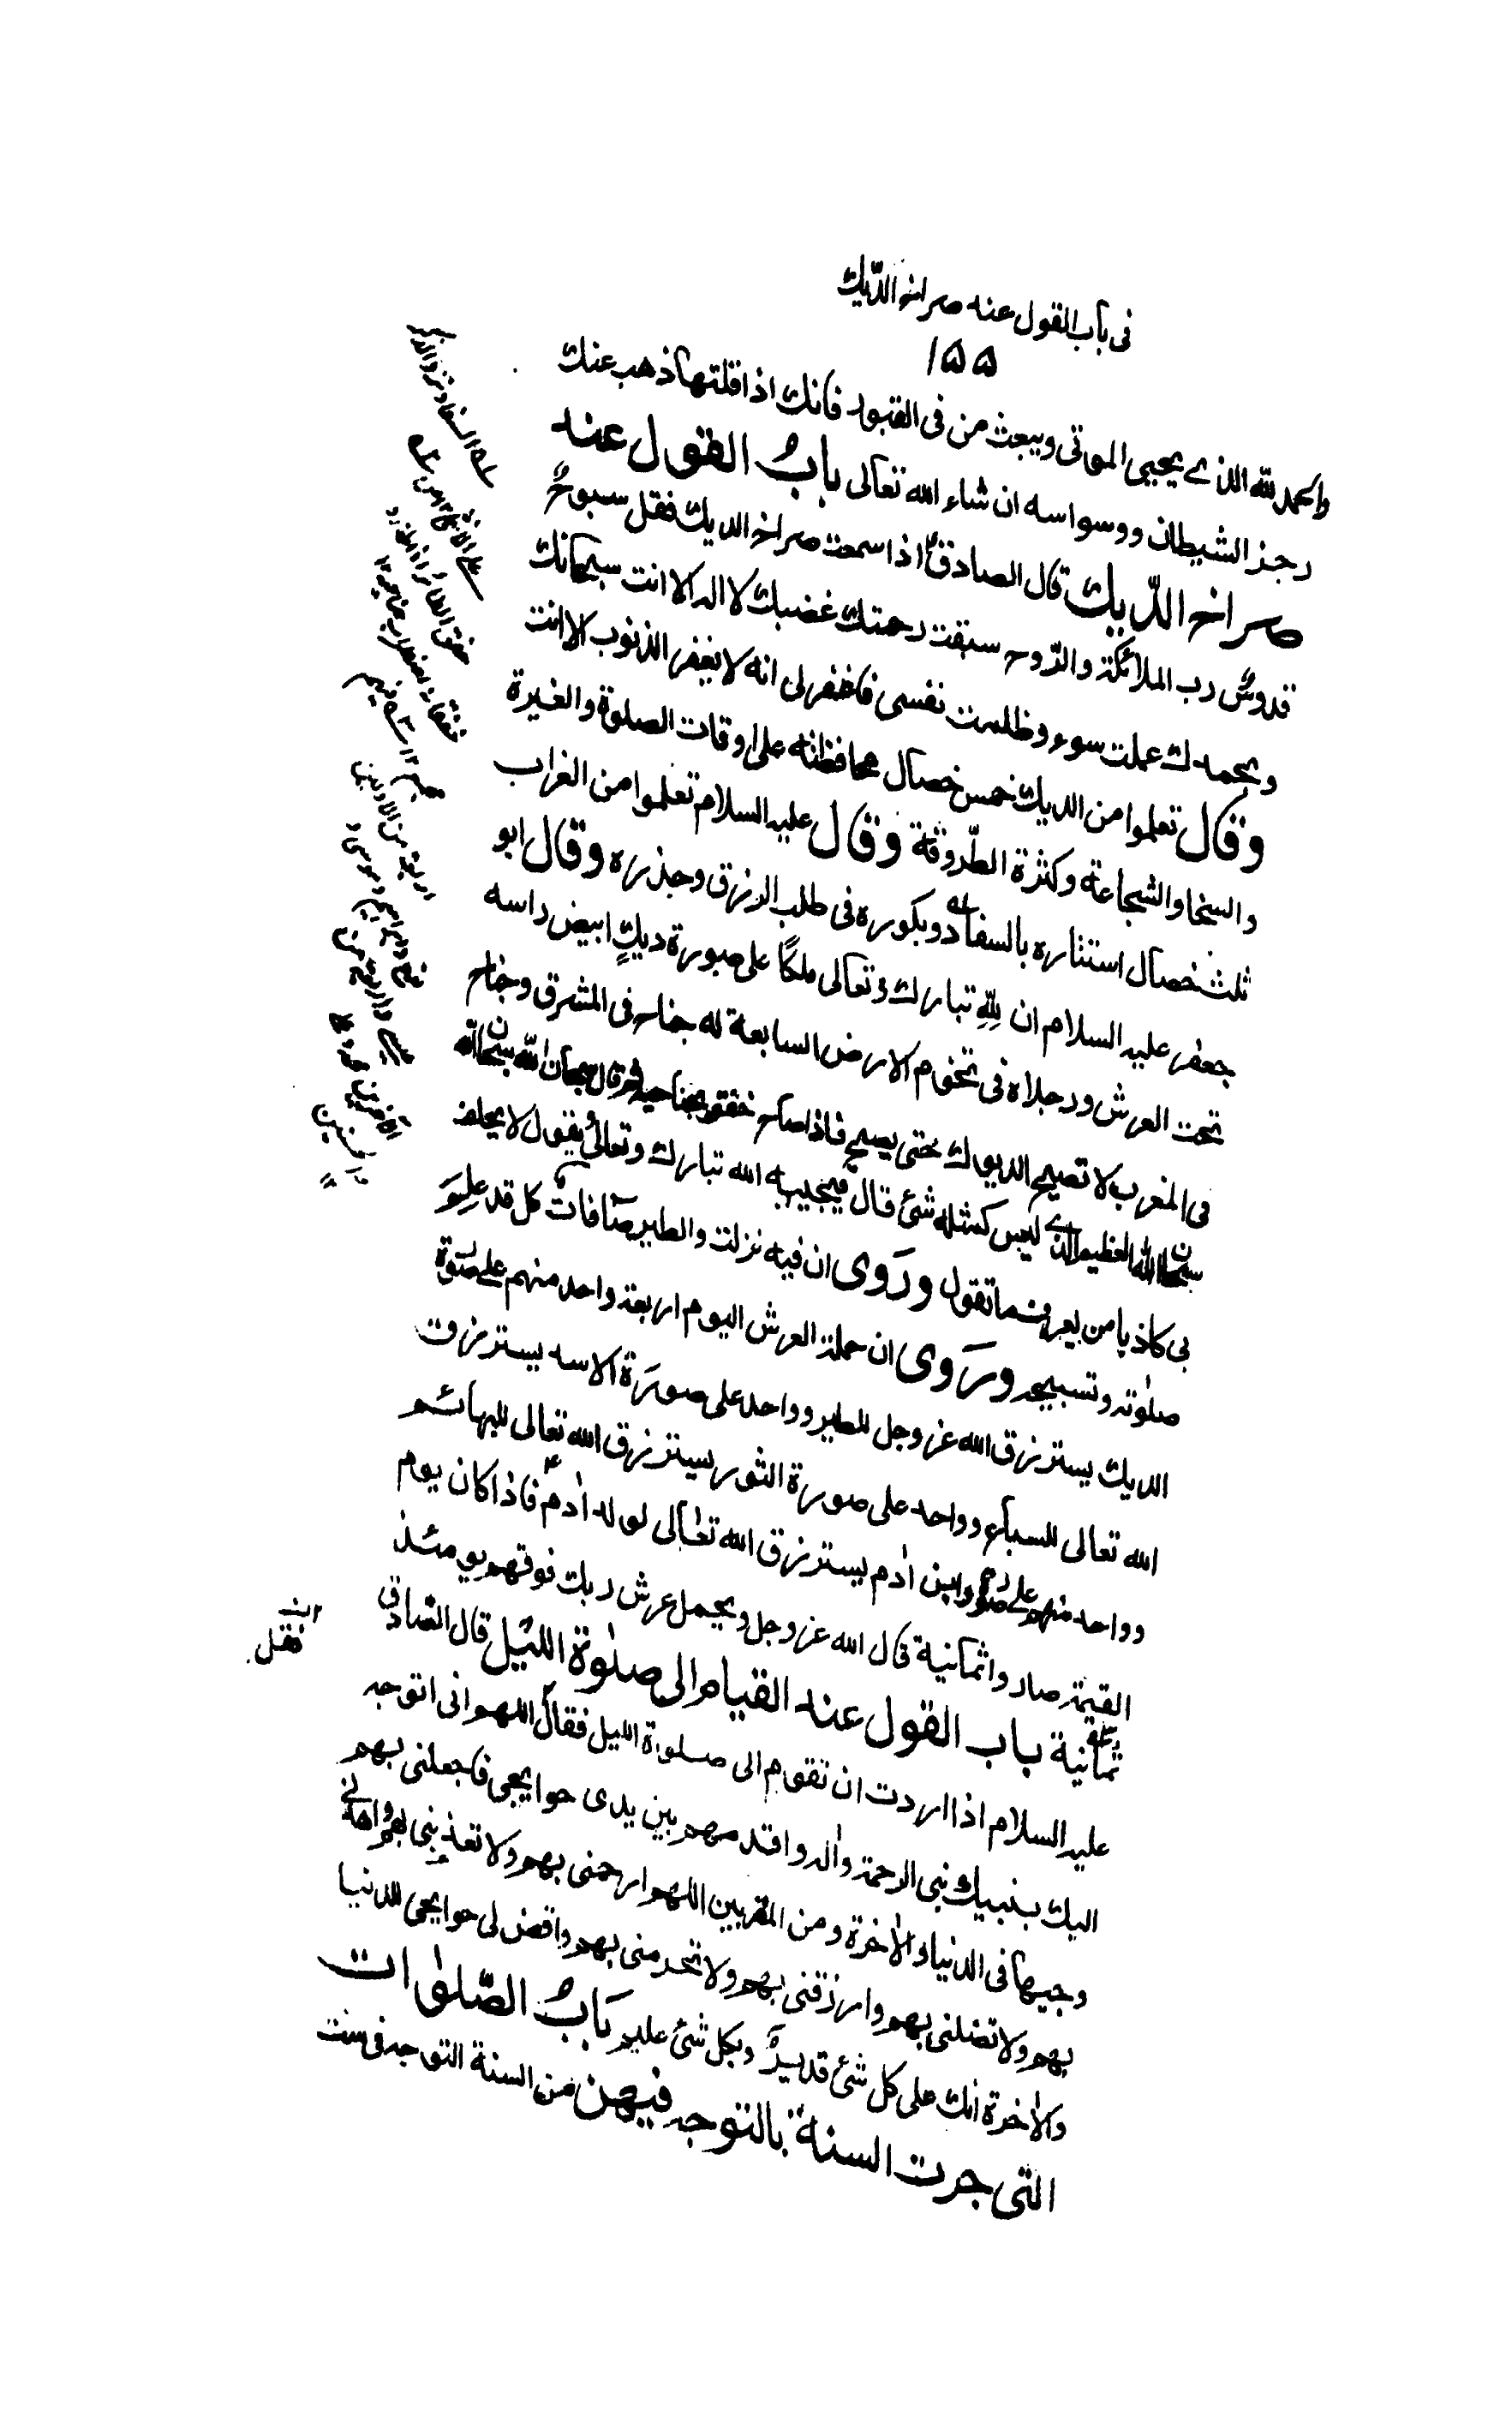 فى باب القول عند صراخ الديك
١٥٥
والحمد لله الذے يحيى الموتى ويبعث من فى القبور فانك اذا قلتها ذهب عنك
رجز الشيطان ووسواسه ان شاء الله تعالى بابُ القول عند
صراخ الدّيك قال الصادقؑ اذا سمعت صراخ الديك فقل سبوحٌ
قدوسٌ رب الملائكة والرّوح سبقت رحمتك غضبك لا اله الا انت سبحانك
وبحمدك عملت سوء وظلمت نفسى فاغفر لى انه لا يغفر الذنوب الا انت
وقال تعلموا من الديك خمس خصال محافظته على اوقات الصلوة والغيرة
والسخا والشجاعة وكثرة الطّروقة وقال عليه السلام تعلموا من الغراب
ثلث خصال استتاره بالسفاد وبكوره فى طلب الرزق وحذره وقال ابو
جعفر عليه السلام ان لِلّهِ تبارك وتعالى ملكًا على صورة ديكٍ ابيض راسه
تحت العرش ورجلاه فى تخوم الارض السابعة له جناح فى المشرق وجناح
فى المغرب لا تصيح الديوك حتى يصيح فاذا صاح خفق بجناحيه ثم قال سبحان الله سبحان الله
سبحان الله العظيم الذے ليس كمثله شئ قال فيجيبه الله تبارك وتعالى ويقول لا يحلف
بى كاذبا من يعرف ما تقول ورَوى ان فيه نزلت والطير صآفات كل قد علِمَ
صلٰوته وتسبيحه ورَوى ان حملة العرش اليوم اربعة واحد منهم على صورة
الديك يسترزق الله عز وجل للطير وواحد على صورَة الاسد يسترزق
الله تعالى للسباع وواحد على صورة الثور يسترزق الله تعالى للبهائم
وواحد منهم على صورة ابن اٰدم يسترزق الله تعالى لولد اٰدمؑ فاذا كان يوم
القيمة صاروا ثمانية قال الله عز وجل ويحمل عرش ربك فوقهم يومئذ
ثمٰنية باب القول عند القيام الى صلٰوة الليل قال الصّادق
عليه السلام اذا اردت ان تقوم الى صلوة الليل فقال اللهم انى اتوجه
اليك بنبيك نبى الرحمة واٰله واقدمهم بين يدى حوايجى فاجعلنى بهم
وجيها فى الدنيا والاٰخرة ومن المقربين اللهم ارحمنى بهم ولا تعذبنى بهم واهدنى
بهم ولا تضلنى بهم وارزقنى بهم ولا تحرمنى بهم واقض لى حوايجى للدنيا
والاٰخرة انك على كل شئ قديرٌ وبكل شئ عليم بَابُ الصّلوٰات
التى جرت السنة بالتوجه فيهن من السنة التوجه فى ست
فقل